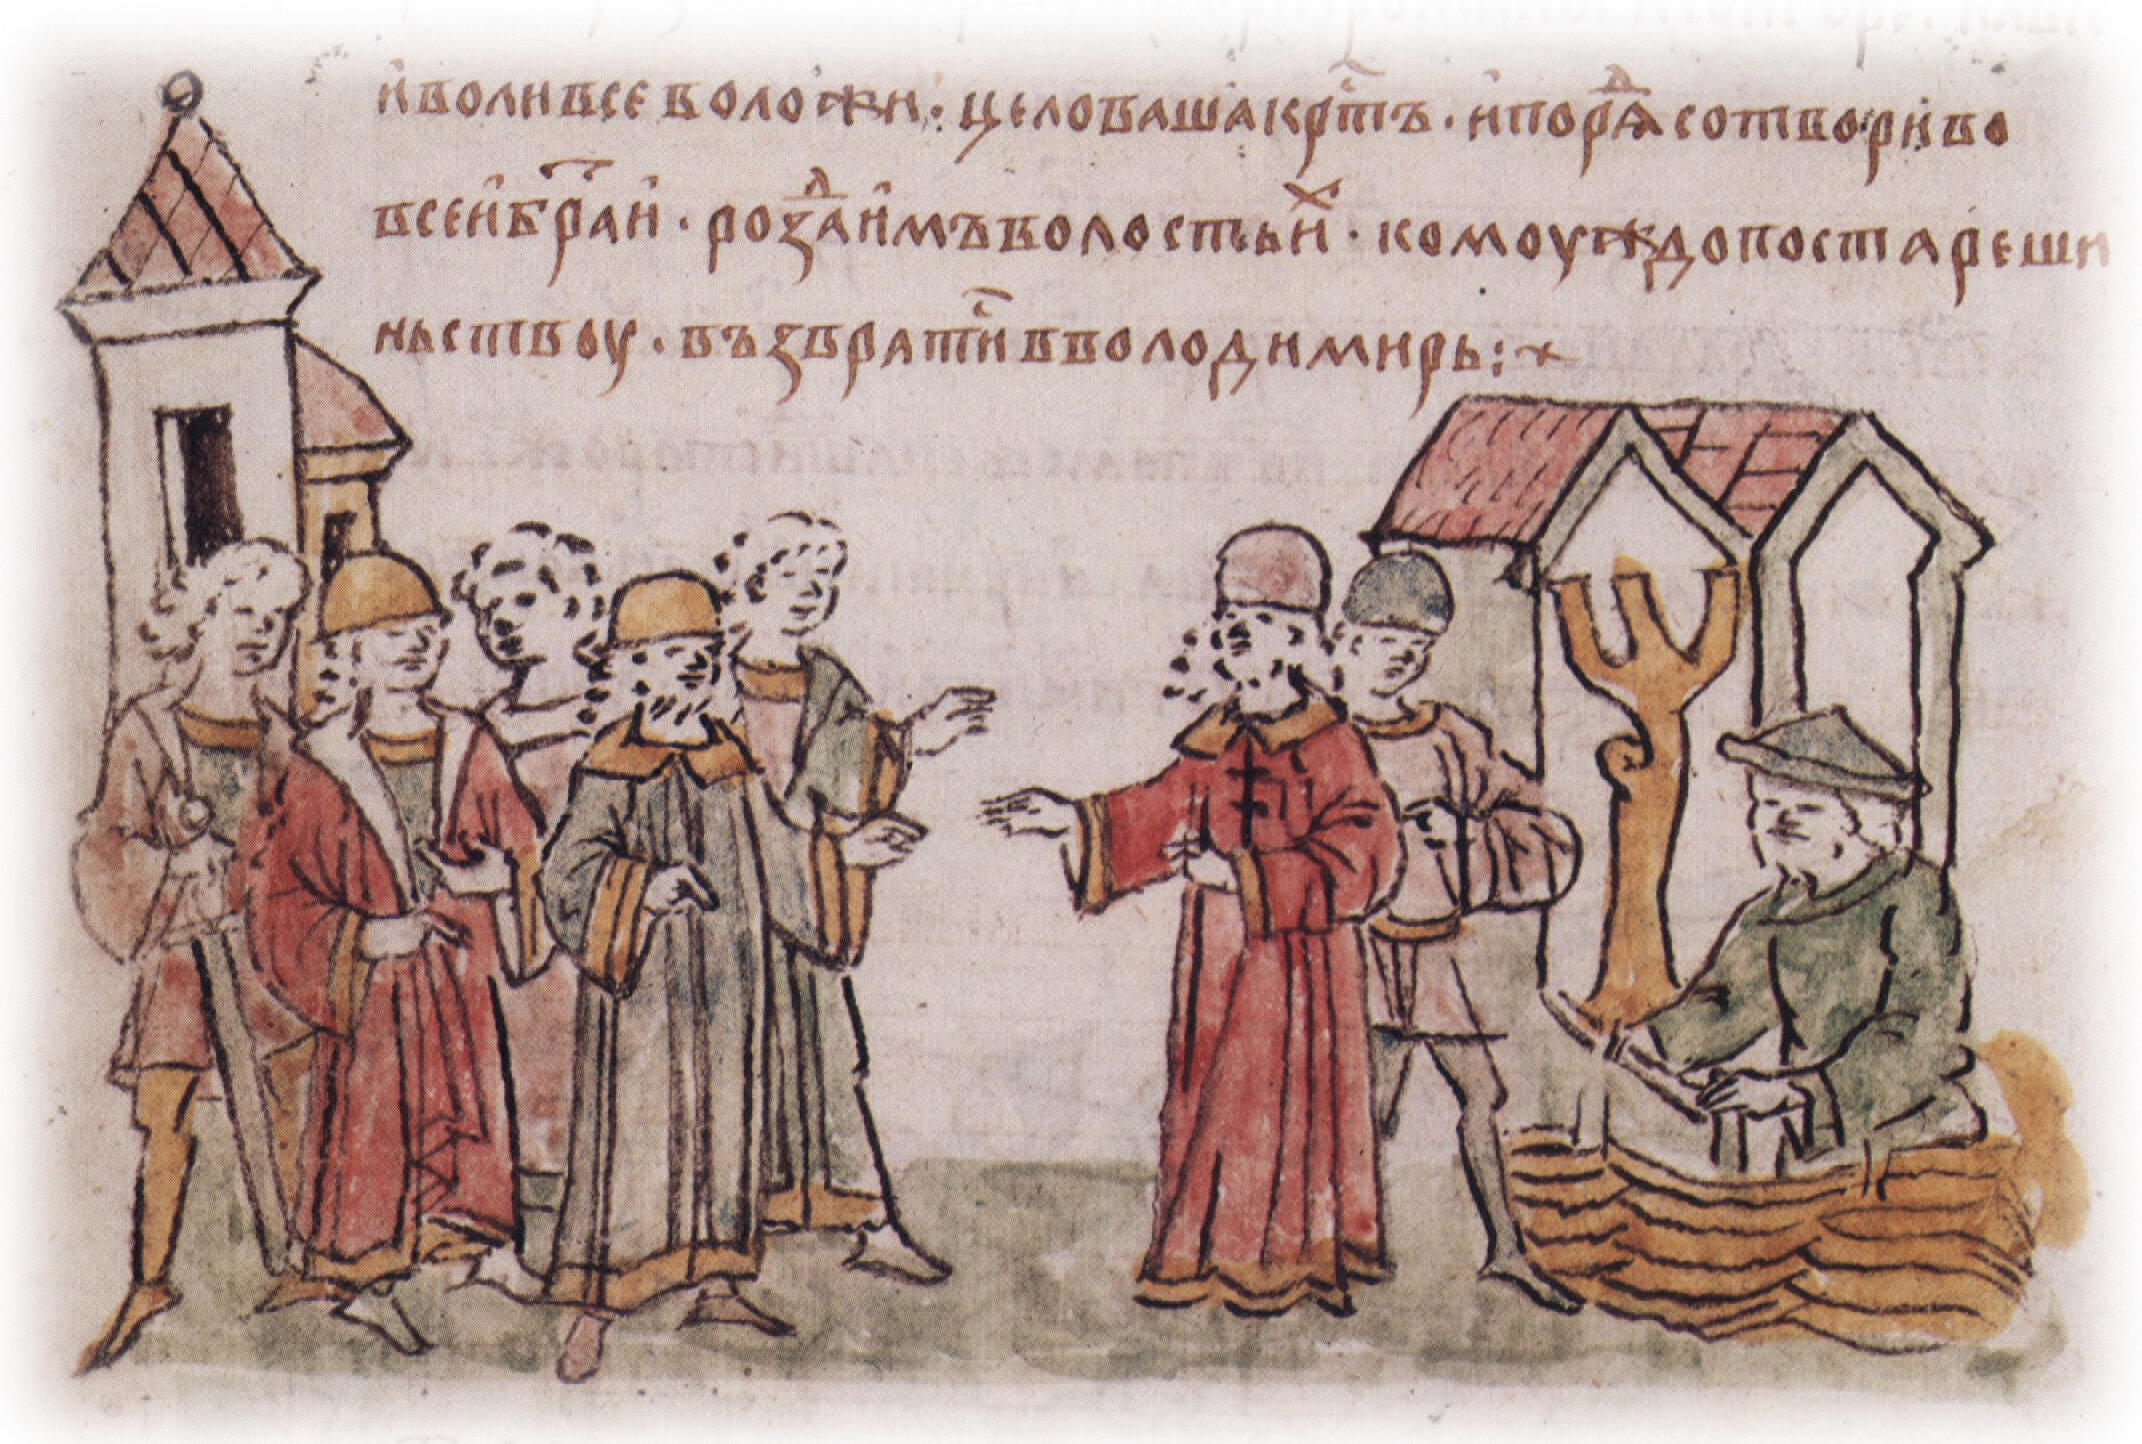 и воли всеволожи · целоваша кр҃тъ · и порѧⷣ сотвори во
всеи бр҃аи · роздаи имъ волостьиⷯ · комоуждо по стареиши
ньствоу · възвратиⷭ в володимирь :~